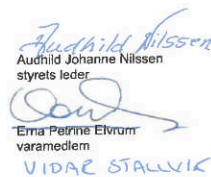 Audhild Nilssen
Audhild Johanne Nilssen
styrets leder
Erna Petrine Elvrum
varamedlem
VIDAR STALLVIK